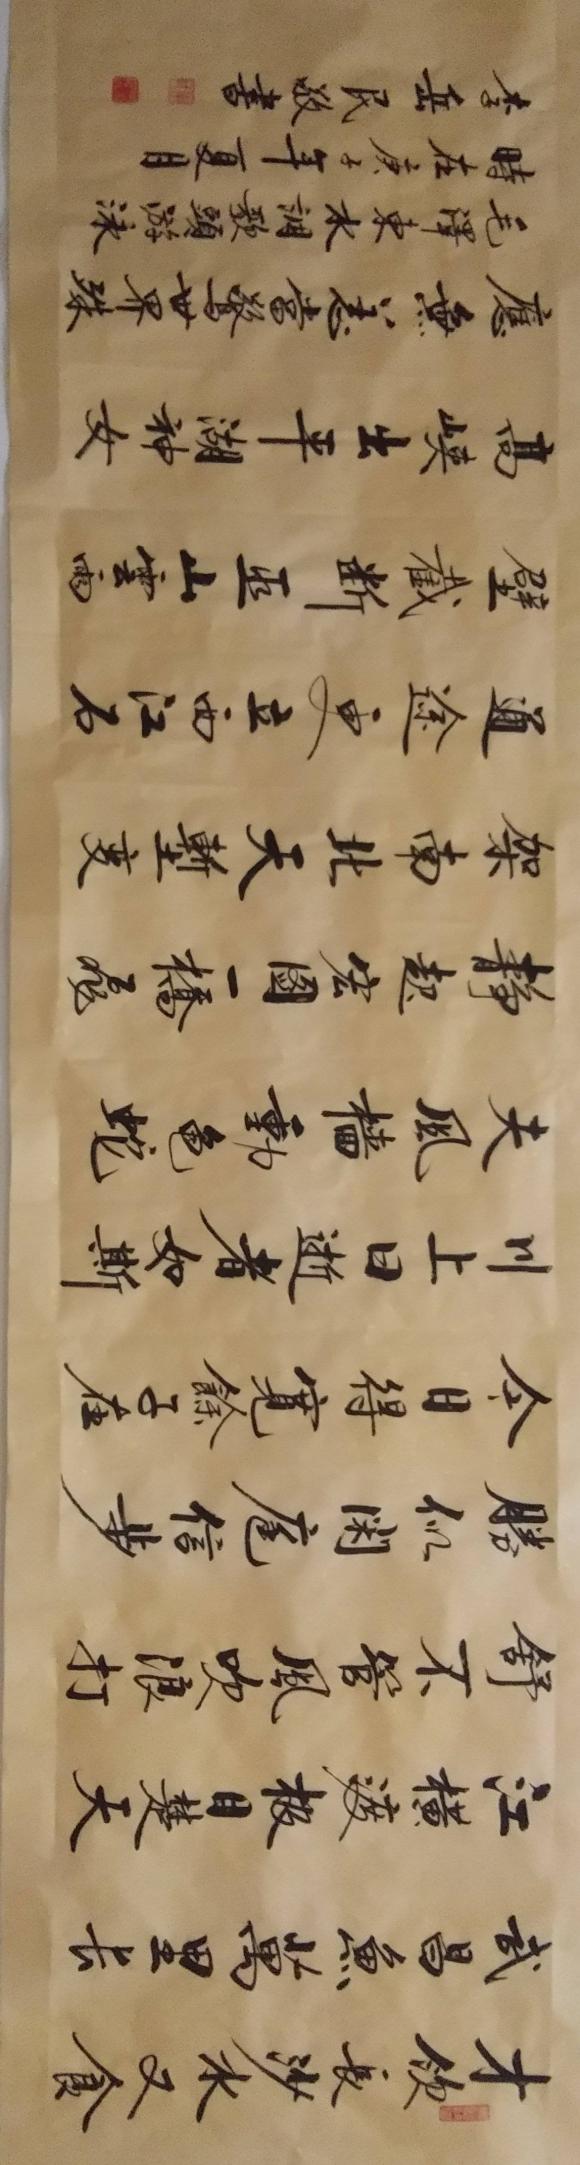 才飲長沙水又食
武昌魚萬里長
江橫渡極目楚天
舒不管風吹浪打
勝似闲庭信步
今日得寬餘子在
川上曰逝者如斯
夫風檣動龜蛇
靜起宏圖一橋飛
架南北天塹變
道途更立西江石
壁截斷巫山雲雨
高峽出平湖神女
應無恙當驚世界殊
毛澤東水調歌頭游泳
時在庚子年夏月
李岳民敬書